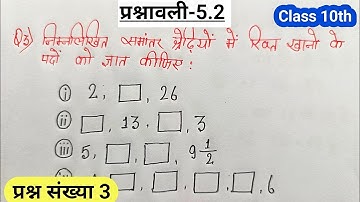 प्रश्नावली-5.2
Class 10th
Q3) निम्नलिखित समांतर श्रेढ़ियों में रिक्त खानों के
पदों को ज्ञात कीजिए :
(i) 2, □, 26
(ii) □, 13, □, 3
(iii) 5, □, □, 9 1/2
□, □, □, □, 6
प्रश्न संख्या 3